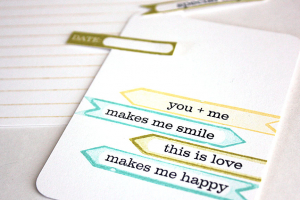 DATE
you + me
makes me smile
this is love
makes me happy